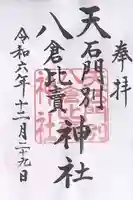 奉拝
天石門別
八倉比賣
神社
令和六年十二月二十九日